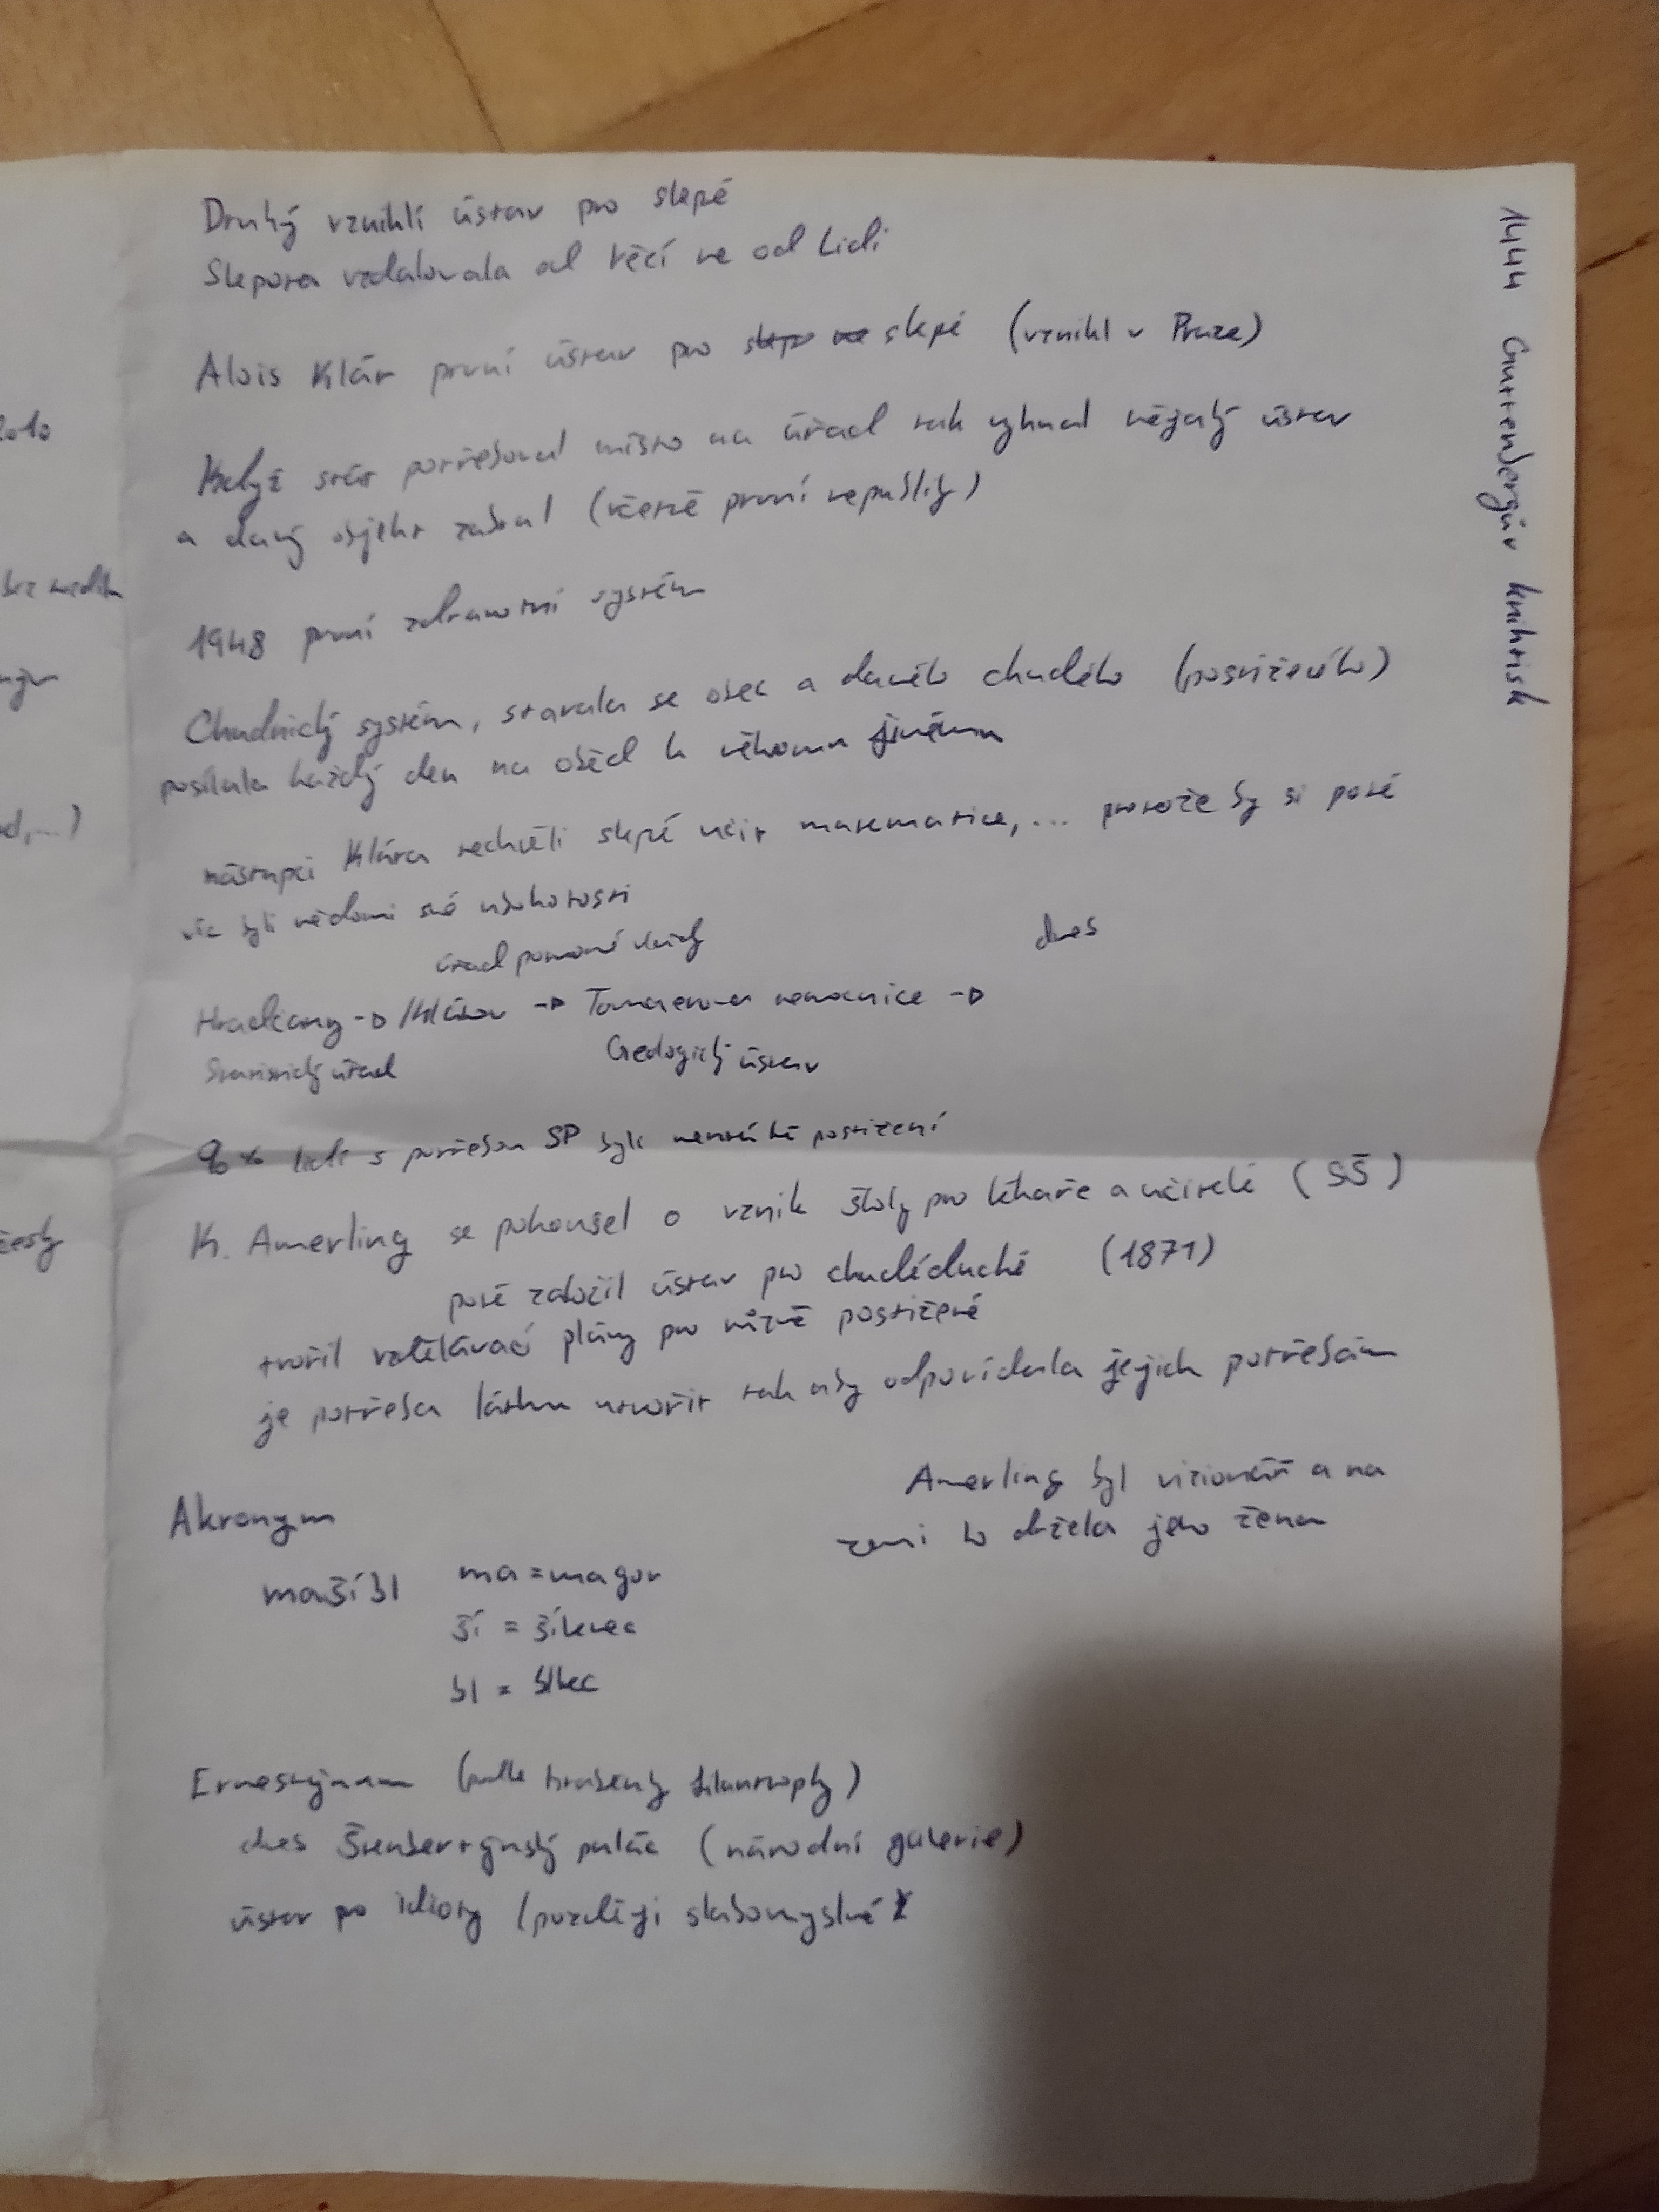 Druhý vznikli ústav pro slepé
Slepota vzdalovala od věcí ne od Lidi
Alois Klár první ústav pro slepé (vznikl v Praze)
Když stát potřeboval místo na úřad tak vyhnal nějaký ústav
a daný objekt zabral (včetně první republiky)
1948 první zdravotní systém
Chudnický systém, starala se obec a daného chudého (postiženého)
posílala každý den na oběd k někomu jinému
nástupci Klára nechtěli slepé učit matematice, ... protože by si poté
víc byli vědomi své ubohosti
úřad
dnes
Hradčany → Klárov → nemocnice →
Statistický úřad
Geologický ústav
90% lidí s potřebou SP byli mentálně postižení
K. Amerling se pokoušel o vznik školy pro lékaře a učitelé (SŠ)
poté založil ústav pro chudéduché (1871)
tvořil vzdělávací plány pro různě postižené
je potřeba látku utvořit tak aby odpovídala jejich potřebám
Amerling byl vizionář a na
zemi ho držela jeho žena
Akronym
mašíbl ma = magor
ší = šílenec
bl = blbec
Ernestýnum (podle hraběnky filantropky)
dnes palác (národní galerie)
ústav po idioty (později slabomyslné)
1444 Guttenbergův knihtisk
2010
bez
ed, ...)
česky